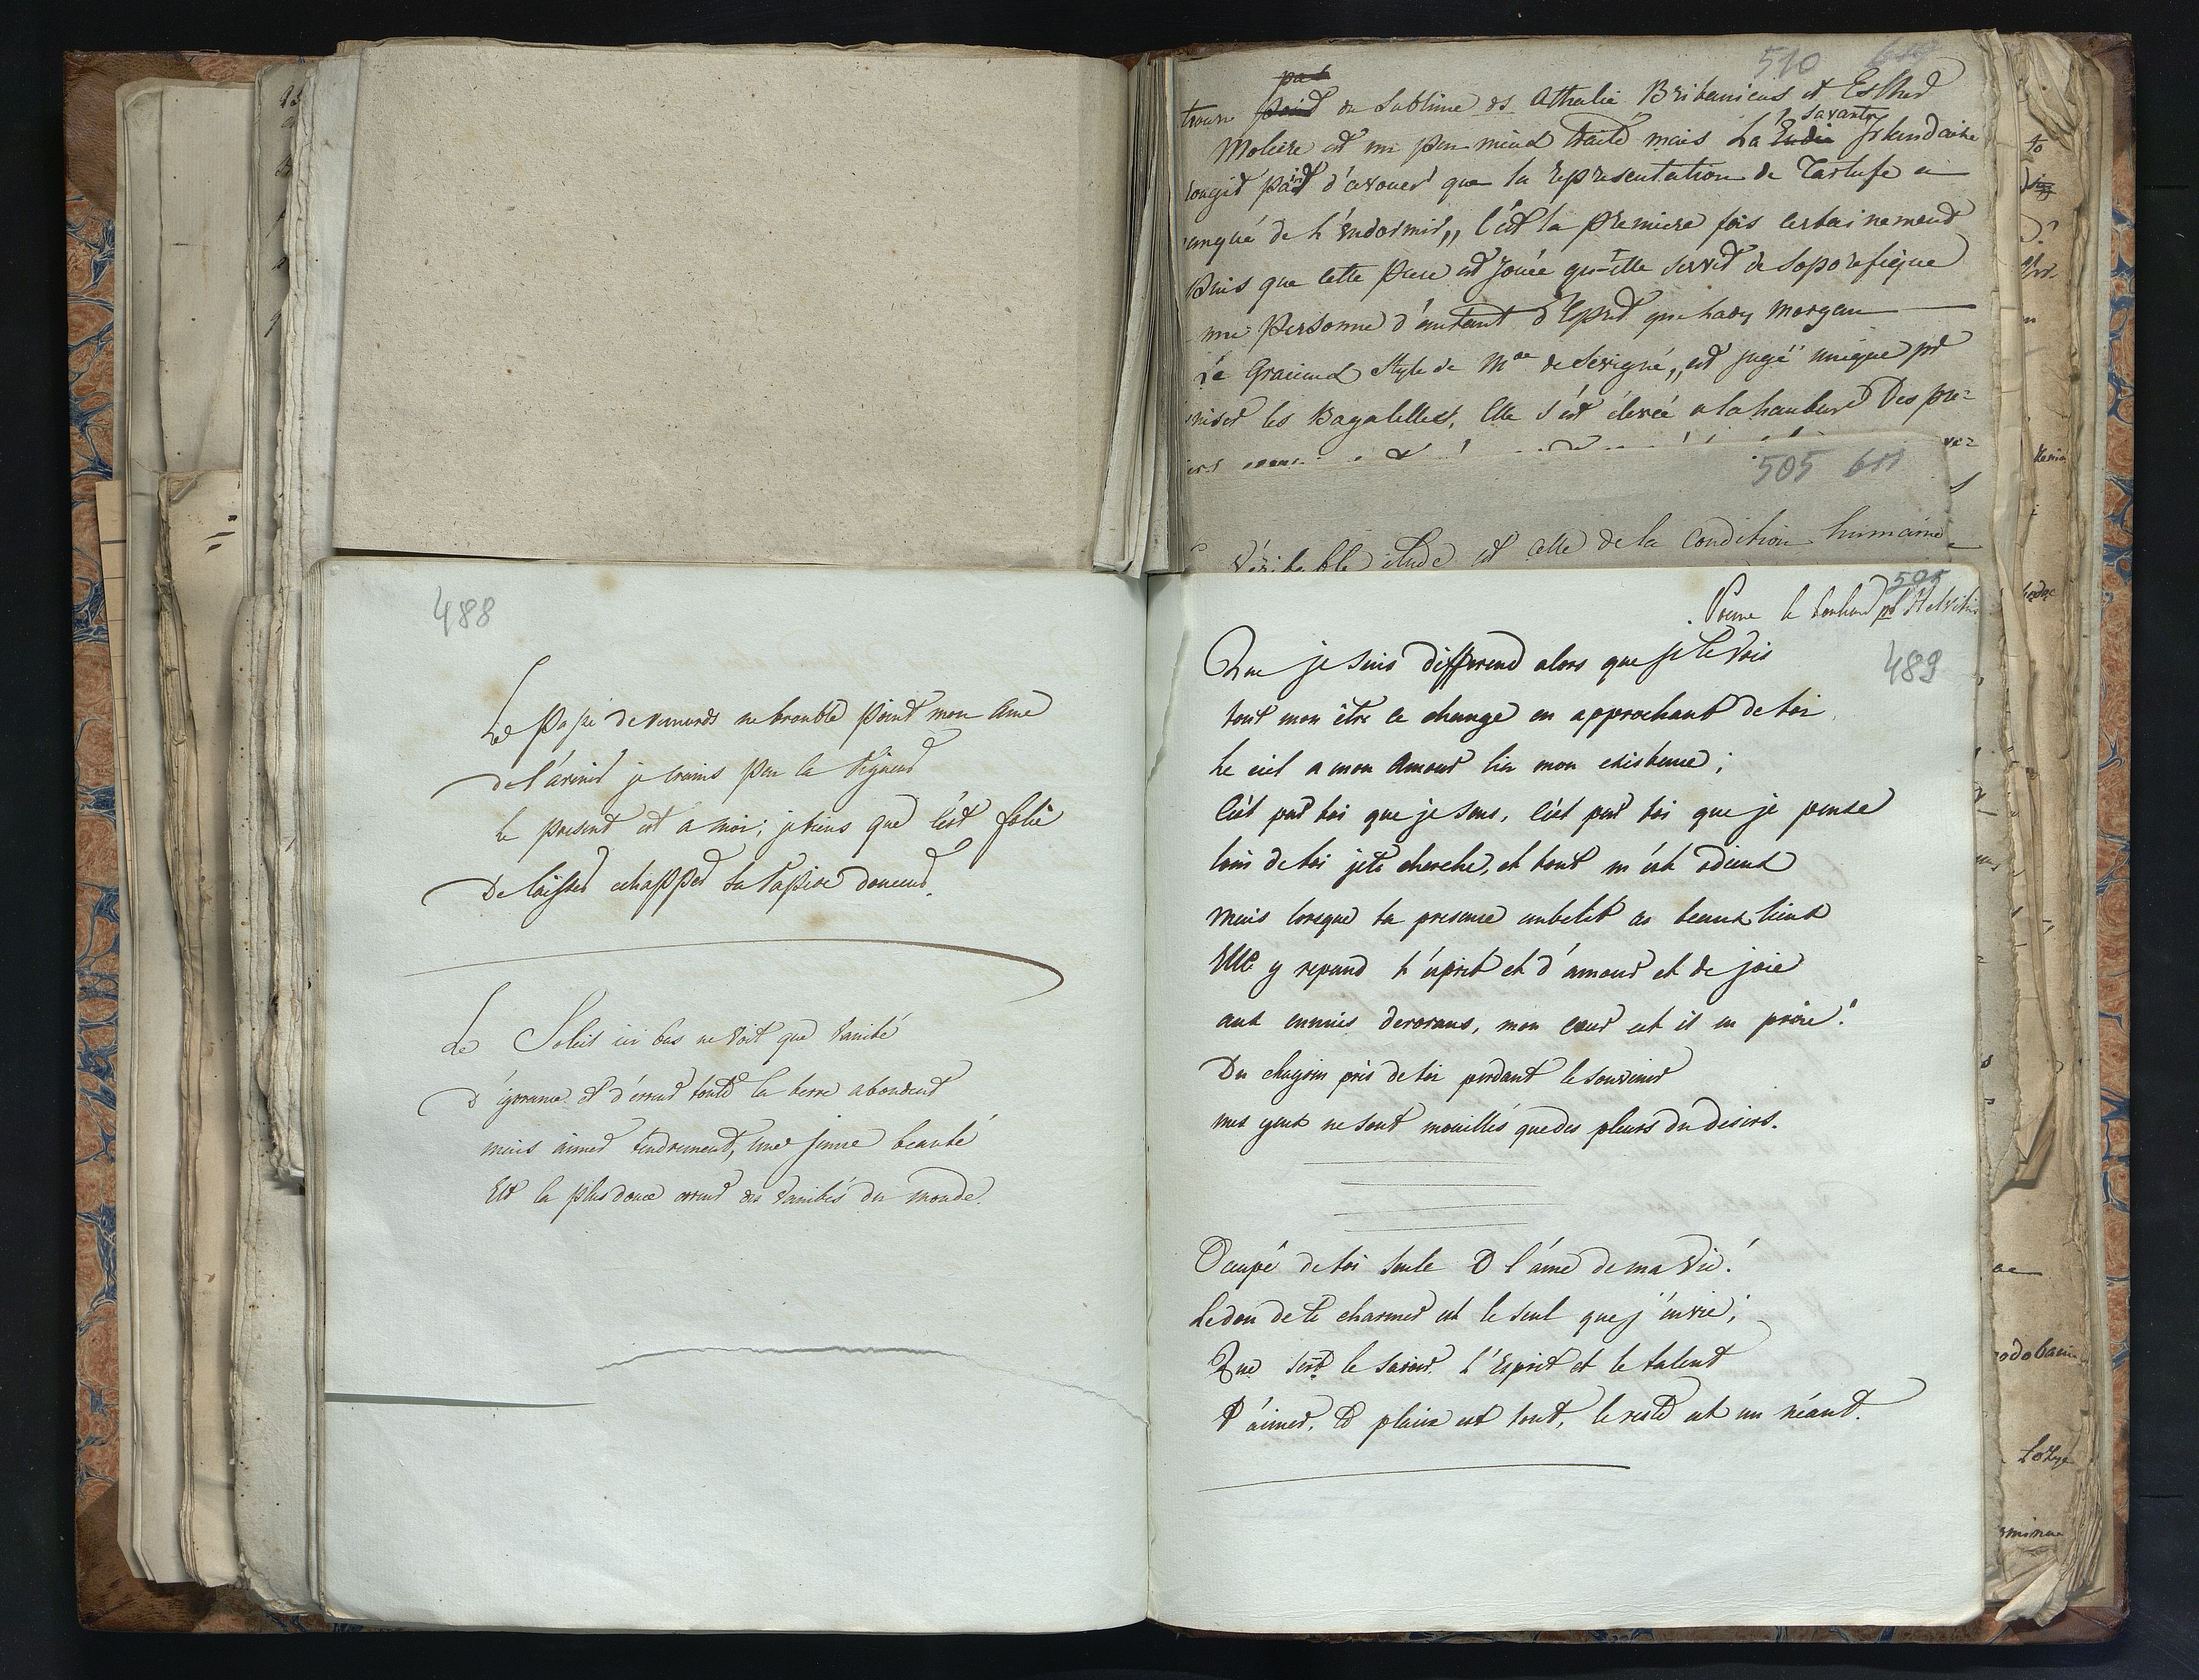 488
Le passé de remords ne trouble point mon ame
de l'avenir je crains peu la rigueur
le present est a moi; je tiens que c'est folie
De laisser echapper sa
Le Soleil ici bas ne voit que vanité
D'ignorance et d'erreur toute la terre abondent
mais aimer tendrement, une jeune beauté
Est la plus douce erreur des vanités du monde.
510
pas
trouve point du Sublime ds Athalie Britanicus et Esther
savante
Moliere est un peu mieux traité mais La Irlandaise
rougit point d'avouer que la representation de Tartufe a
anqué de l'endormir,, c'est la premiere fois certainement
puis que cette piece est jouée qu'elle servit de soporifique
une personne d'autant d'esprit que Lady Morgan
Le gracieux style de Mde de Sévigné,, est jugé unique pr
niser les Bagatelles, Elle s'est élevée a la hauteur Des pre=
505 611
véritable étude est celle de la condition humaine
505
Poeme le bonheur pr Helvetius
489
Que je suis different alors que je te vois
tout mon être ce change en approchant de toi
Le ciel a mon Amour lia mon existence;
C'est par toi que je sens, c'est par toi que je pense
loin de toi je te cherche, et tout m'est odieux
mais lorsque ta presence embelit ces beaux lieux
Elle y repand l'esprit et d'amour et de joie
aux ennuis devorans, mon cœur est il en proie!
Du chagrin près de toi perdant le souvenir
mes yeux ne sont mouillés que des pleurs du desirs.
Occupé de toi seule O l'âme de ma vie!
Le don de te charmer est le seul que j'envie;
Que sert le savoir l'Esprit et le talent
T'aimer, te plaire est tout, le reste est un néant.